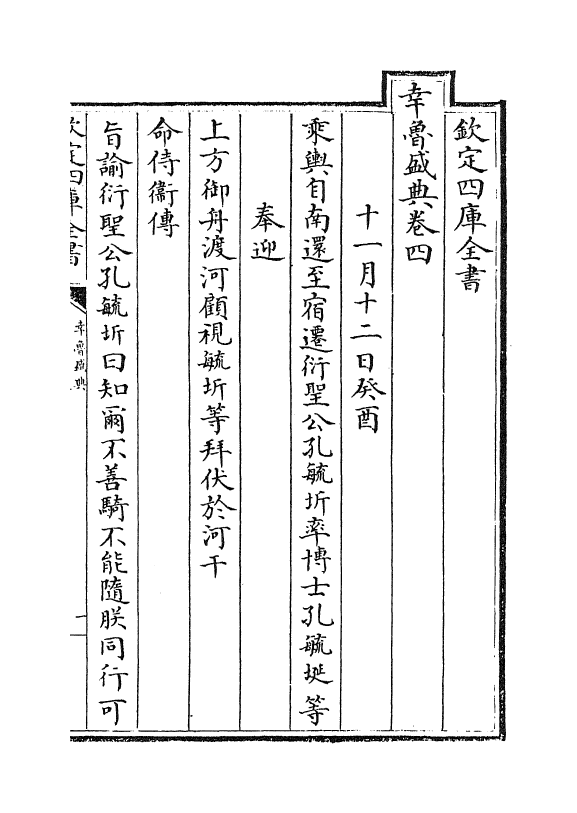 欽定四庫全書
幸魯盛典卷四
十一月十二日癸酉
乘輿自南還至宿遷衍聖公孔毓圻率博士孔毓埏等
奉迎
上方御舟渡河顧視毓圻等拜伏於河干
命侍衞傳
旨諭衍聖公孔毓圻曰知爾不善騎不能隨朕同行可
欽定四庫全書
幸魯盛典
一